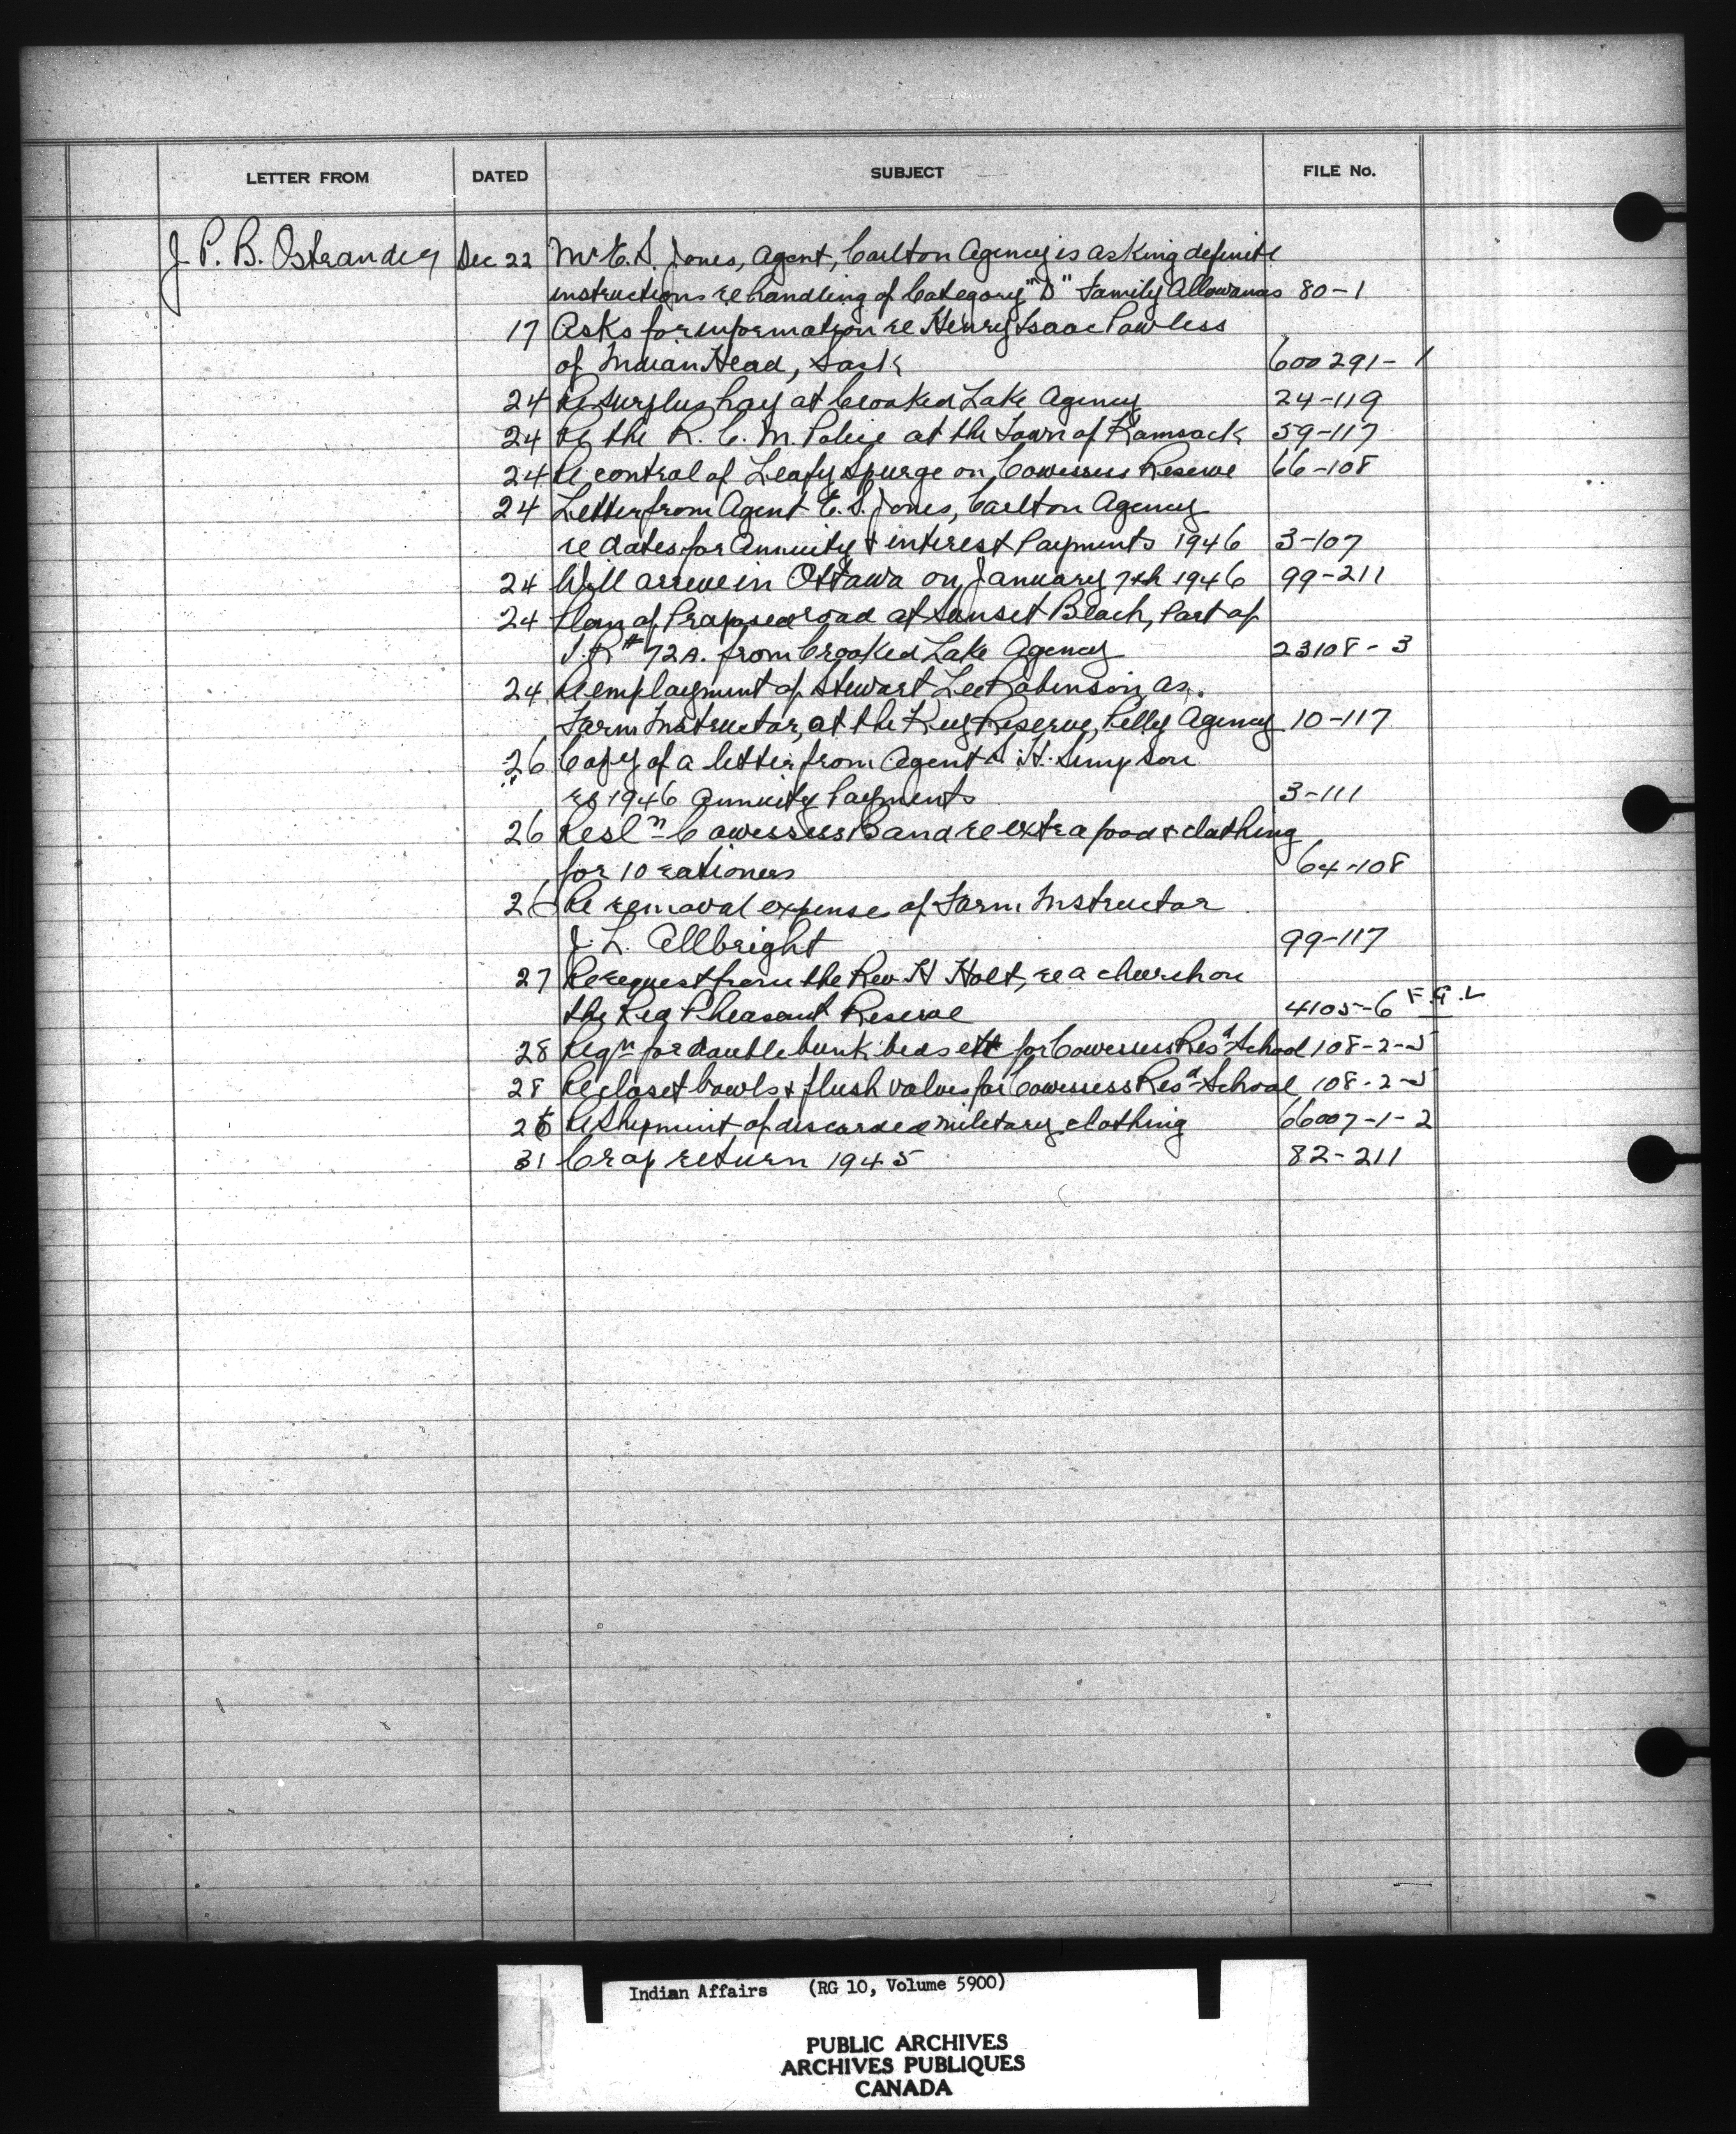 LETTER FROM DATED SUBJECT FILE No.
J. P. B. Ostrander Dec 22 Mr E. S. Jones, Agent, Carlton Agency is asking definite
instructions re handling of Category "D" Family Allowances 80-1
17 Asks for information re Henry Isaac Powless
of Indian Head, Sask 600291-1
24 Re surplus hay at Crooked Lake Agency 24-119
24 Re the R. C. M. Police at the Town of Kamsack 59-117
24 Re control of Leafy Spurge on Cowessess Reserve 66-108
24 Letter from Agent E. S. Jones, Carlton Agency
re dates for Annuity & interest Payments 1946 3-107
24 Will arrive in Ottawa on January 7th 1946 99-211
24 Plan of Proposed road at Sunset Beach, Part of
I.R # 72A. from Crooked Lake Agency 23108-3
24 Re employment of Stewart Lee Robinson as
Farm Instructor, at the Key Reserve, Pelly Agency 10-117
26 Copy of a letter from Agent S. H. Simpson
re 1946 Annuity Payments 3-111
26 Resln Cowessess Band re extra food & clothing
for 10 rationers 64-108
26 Re removal expense of Farm Instructor
J. L. Allbright 99-117
27 Re request from the Rev H Holt, re a church on
the Red Pheasant Reserve 4105-6 F.G.L
28 Reqn for double bunk beds ett for Cowessess Resd School 108-2-5
28 Re closet bowls & flush valves for Cowessess Resd School 108-2-5
26 Re Shipment of discarded military clothing 66007-1-2
31 Crop return 1945 82-211
Indian Affairs (RG 10, Volume 5900)
PUBLIC ARCHIVES
ARCHIVES PUBLIQUES
CANADA